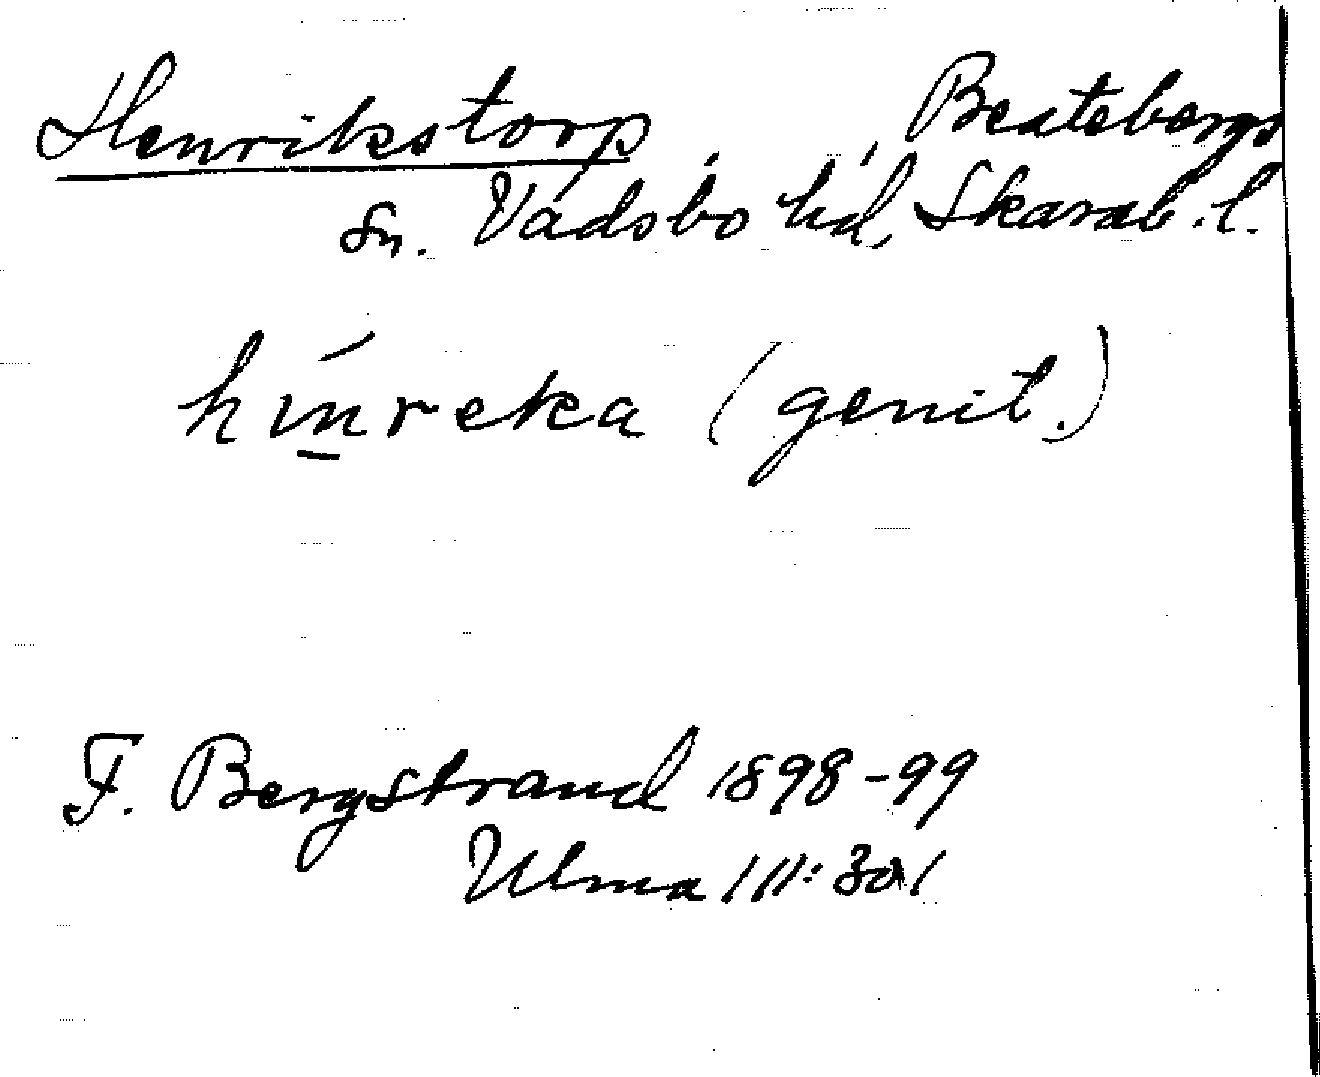 Henrikstorp, Beatebergs
sn. Vadsbo hd, Skarab. l.
hinreka (genit.)
F. Bergstrand 1898-99
Ulma 111:301